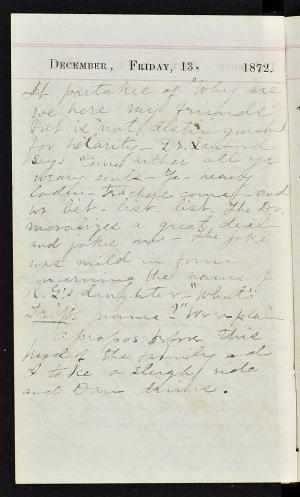 December, Friday, 13, 1872.
It partakes of "Why are
we here my friends"
but is not distinguished
for hilarity - Dr. Sanford
says "Come hither all ye
weary souls - Ye heavy
laden - trachers come" - and
we list - list - list. The Dr.
moralizes a great deal
and jokes one - The joke
was mild in form
concerning the name of
K. G's daughter - "What's
Tripp's name?" We explain
Apropos before this
head of the family and
I take a sleigh ride
and Dan drives.